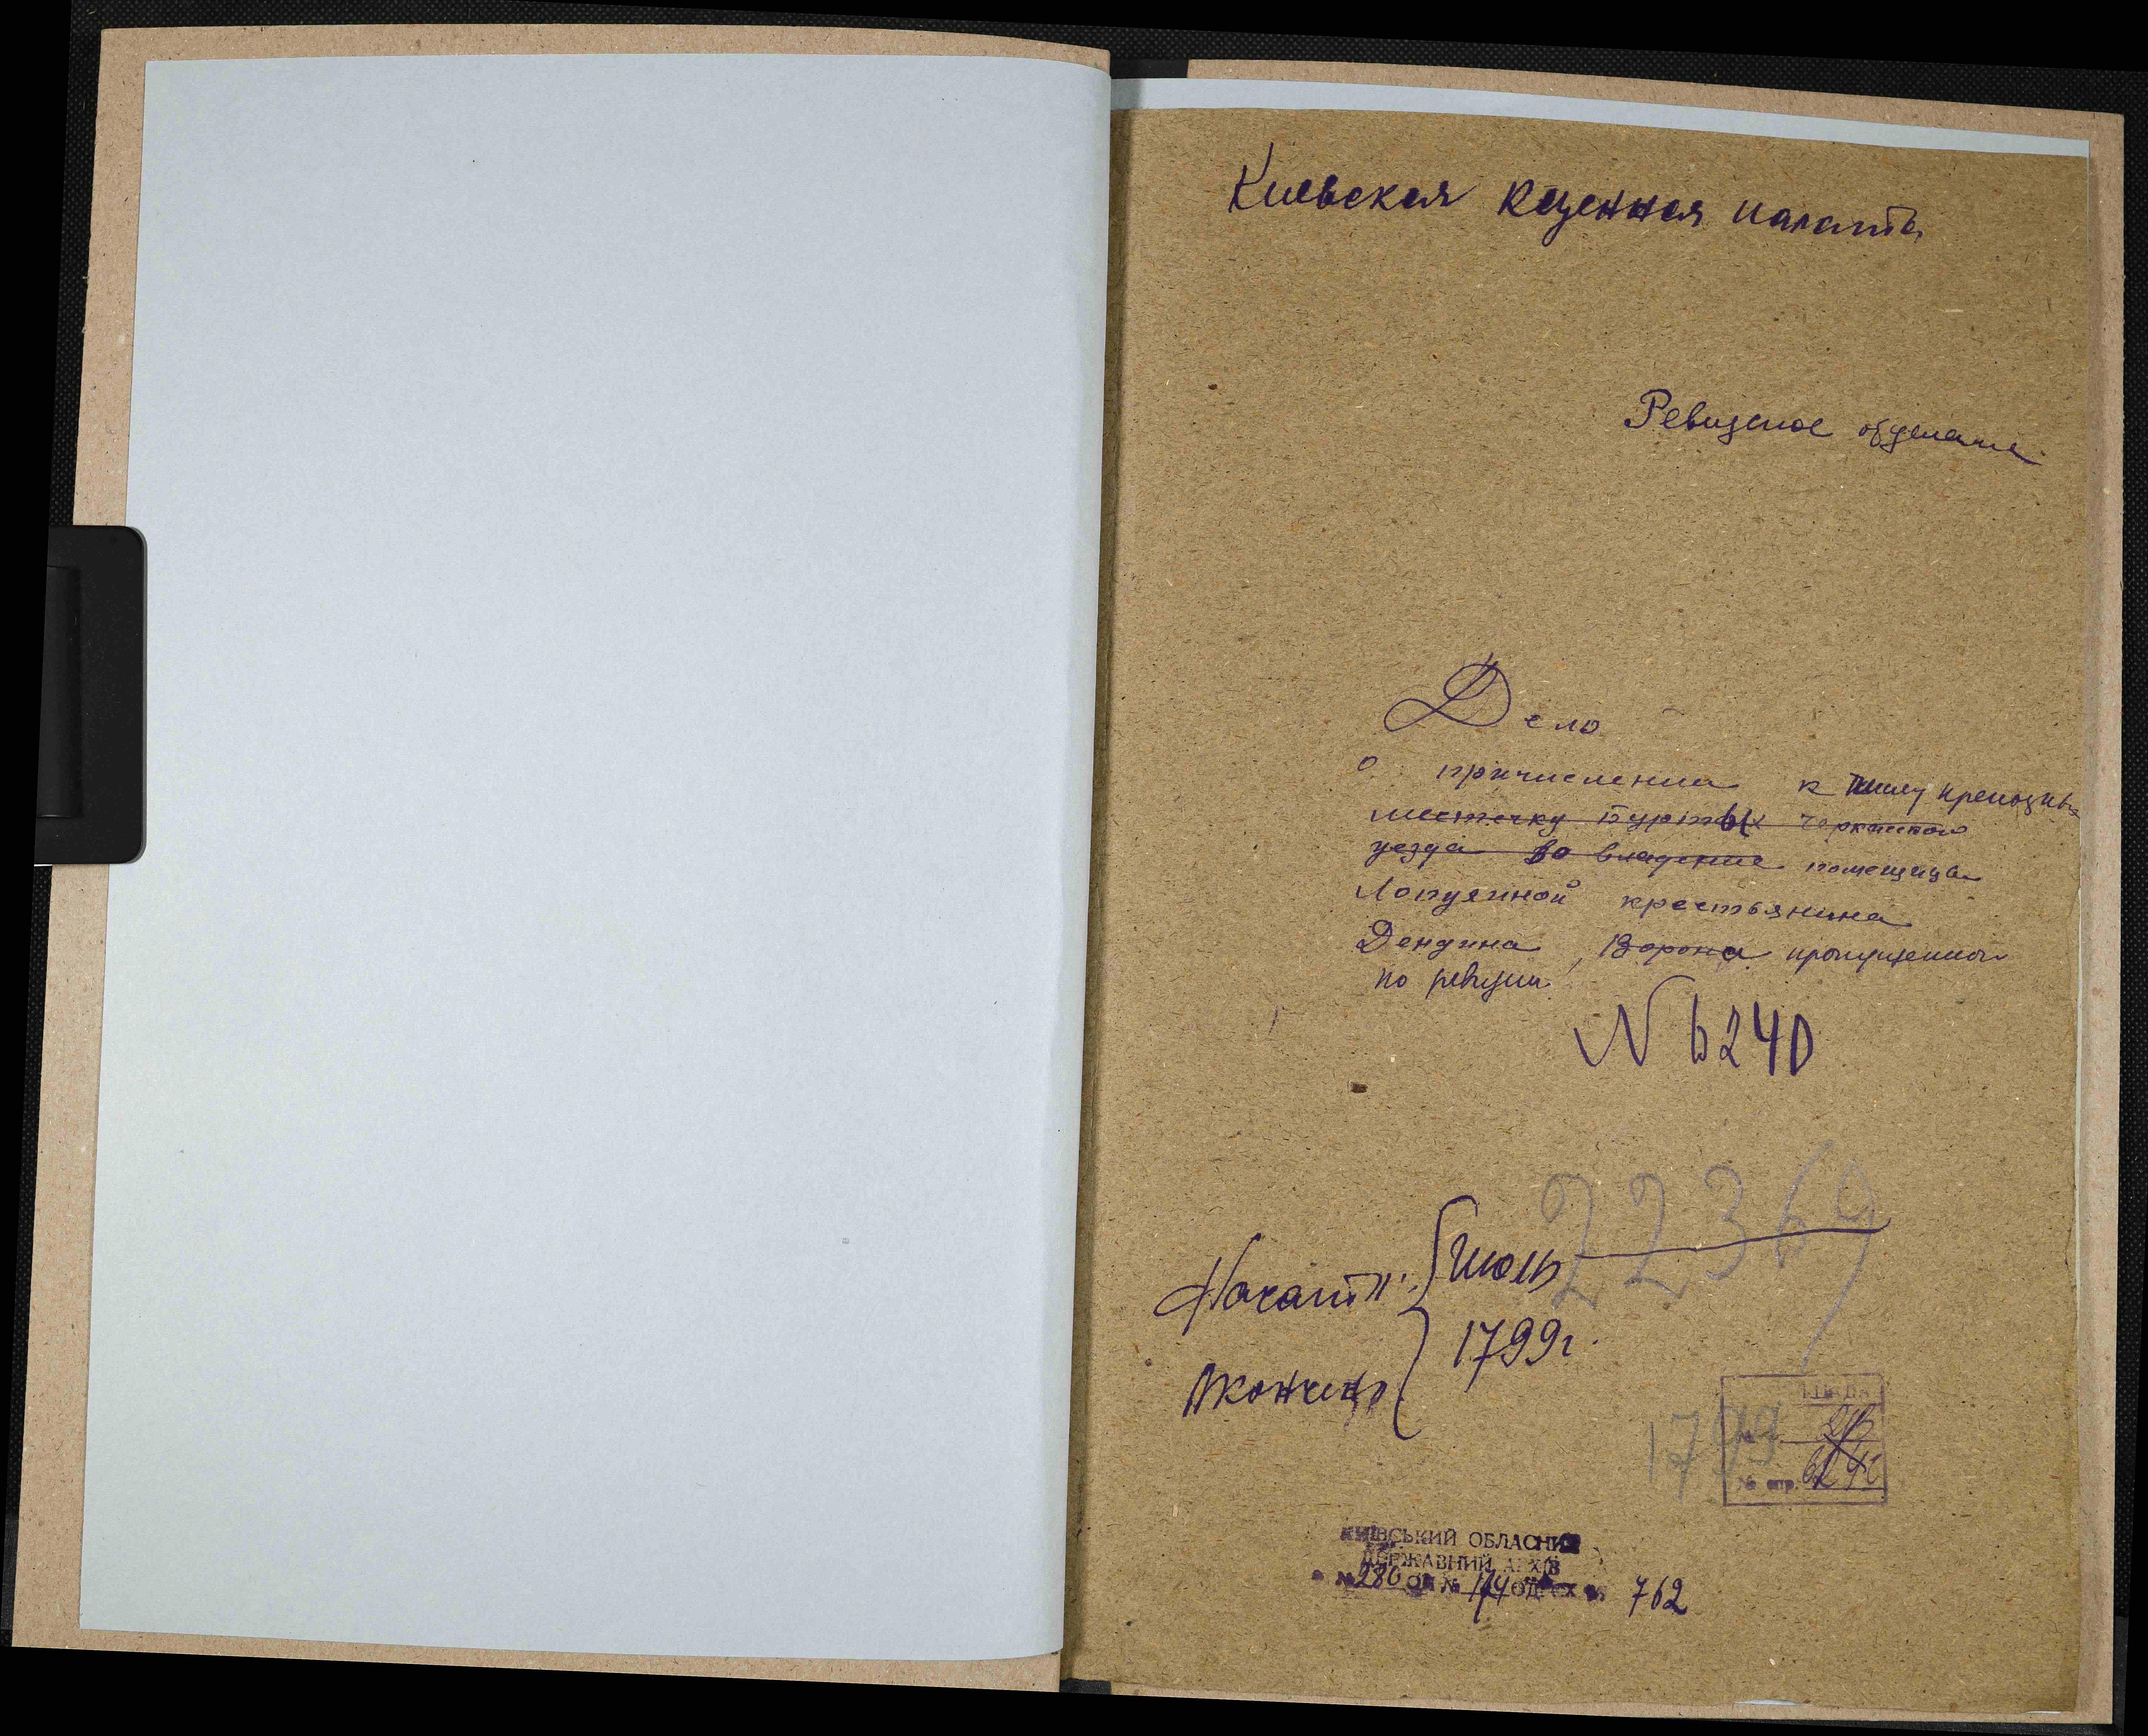 Киевская казенная палата
Ревизское отделение
Дело
о причислении к числу крепостных
местечку Бурты Черкасского
уезда во владение помещицы
крестьянина
Дендина Ворона пропущенного
по ревизии
N 6240
22369
Начато: Июль
1799г.
Окончено
1799
№ 
№ спр.
КИЇВСЬКИЙ ОБЛАСНИЙ
ДЕРЖАВНИЙ АРХІВ
№ 280 ОП № 174 ОД. ЗСХ № 762